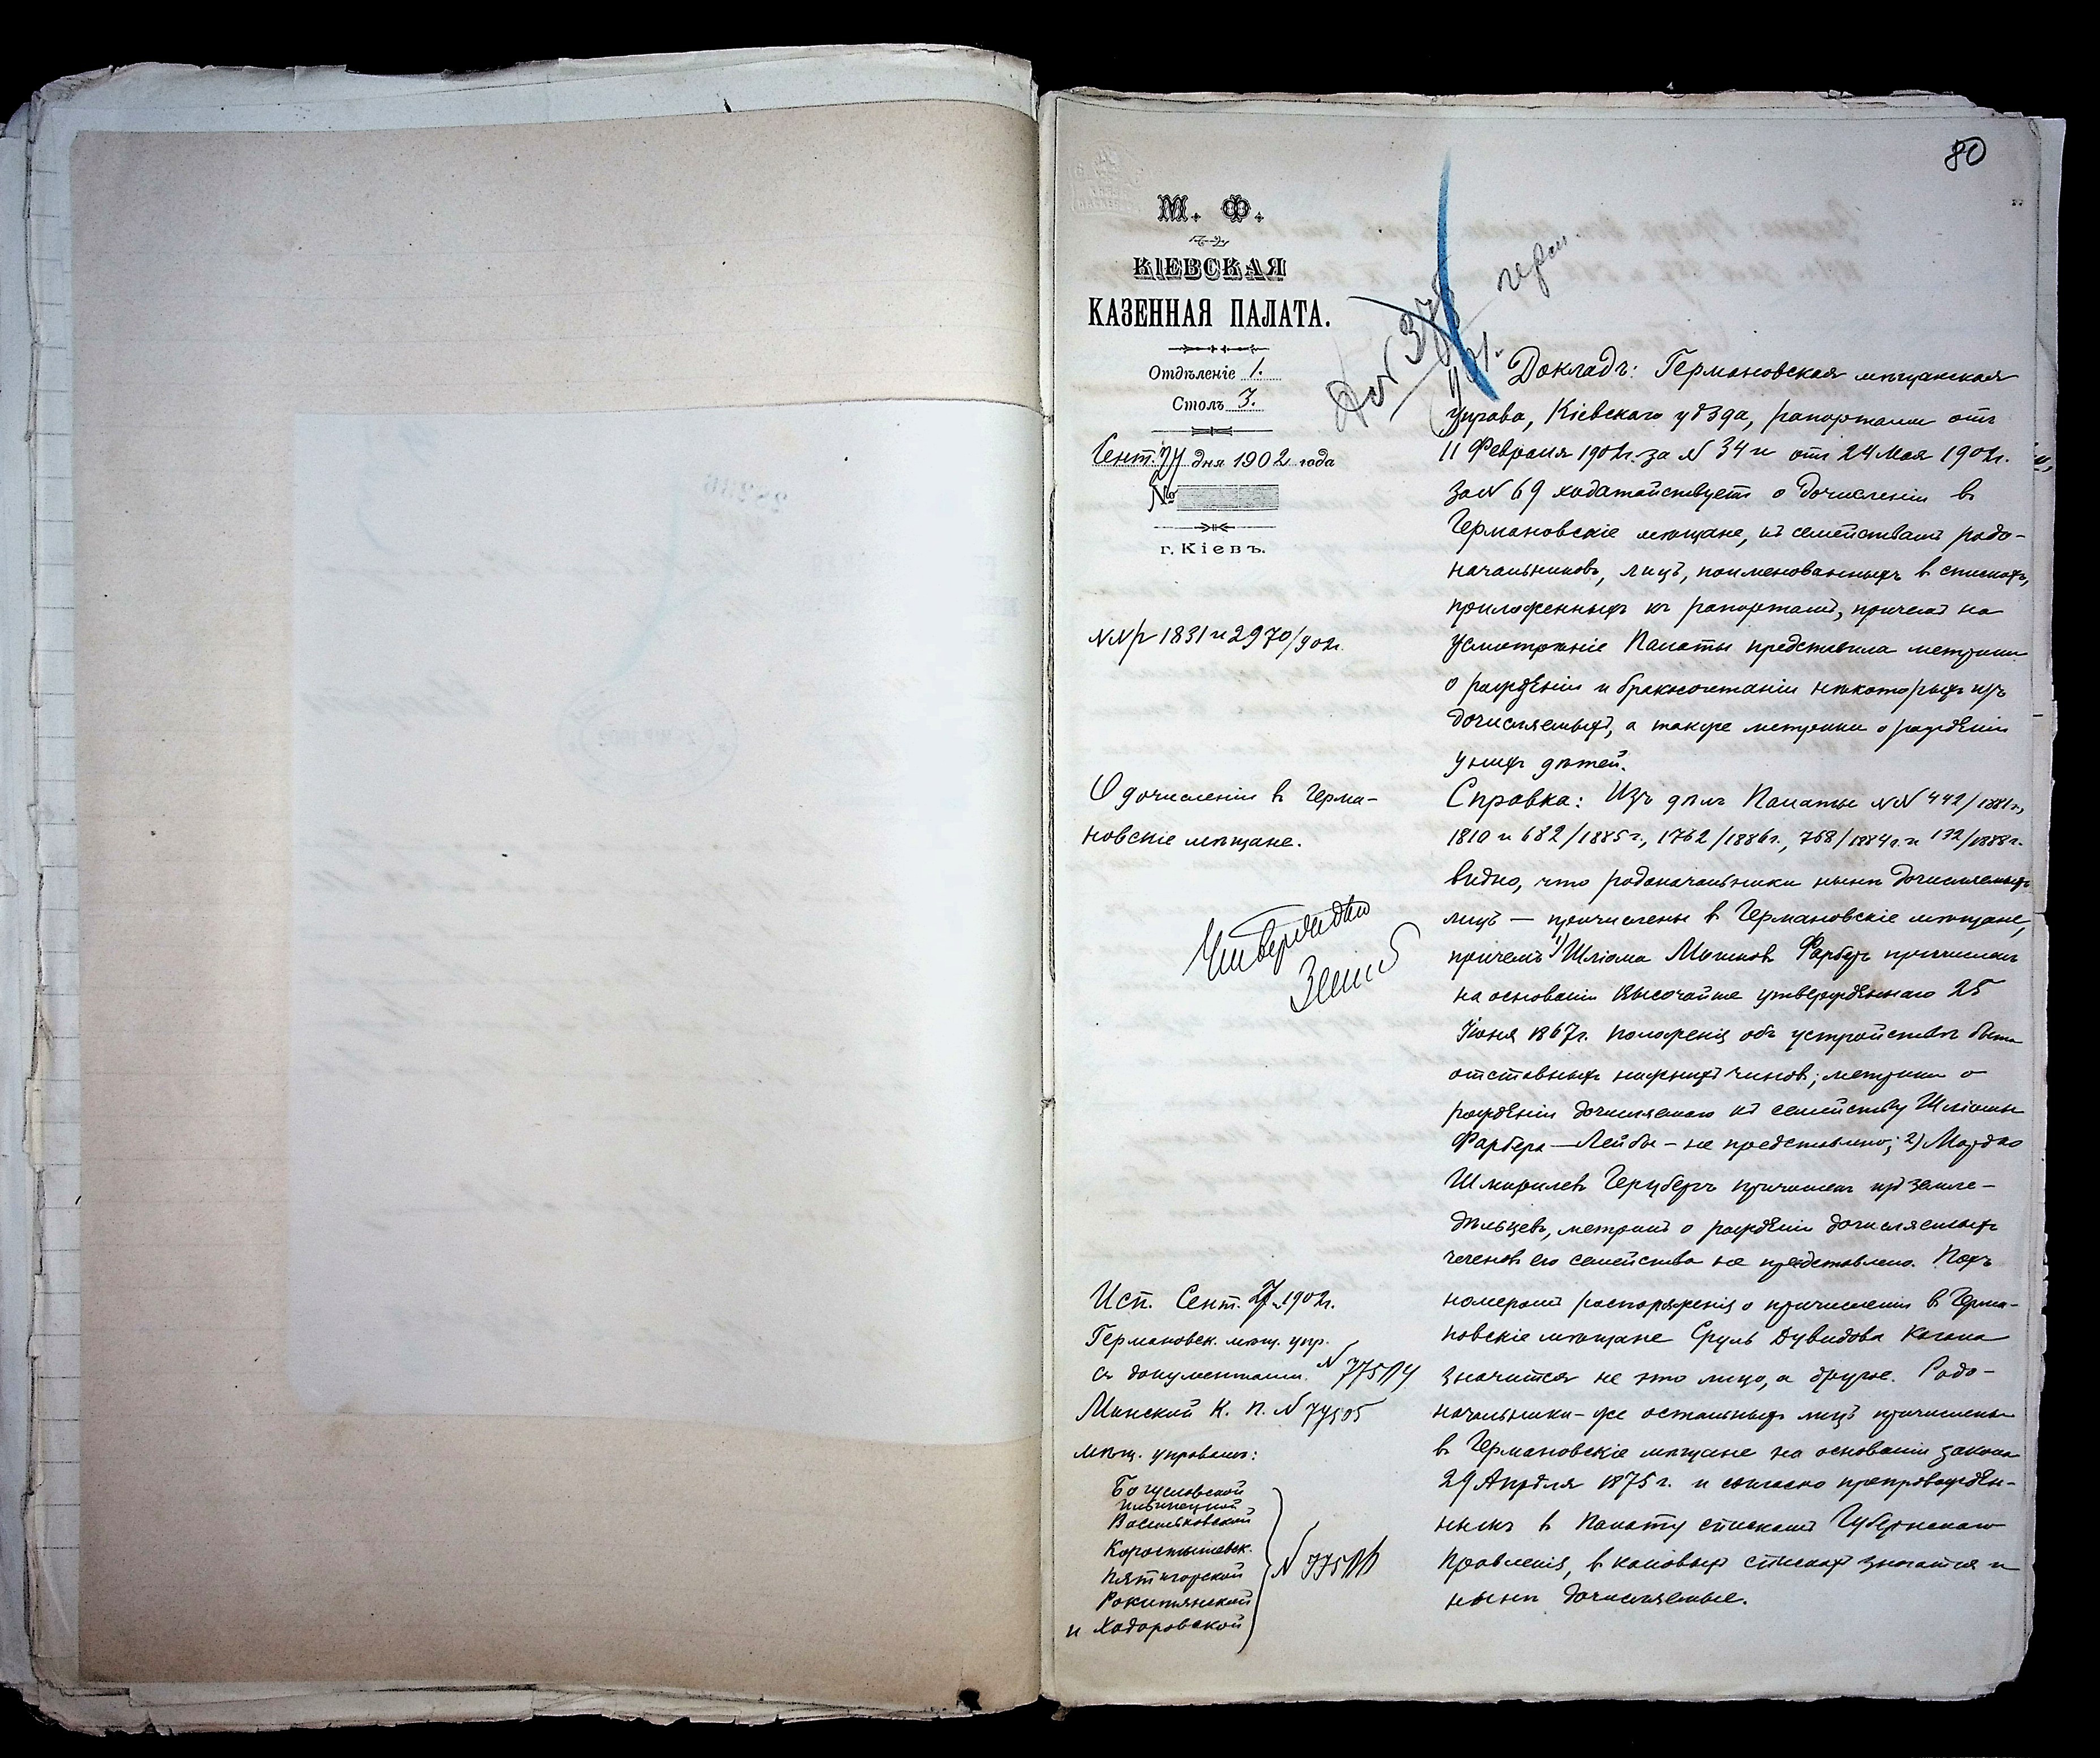 80
М. Ф.
КІЕВСКАЯ
КАЗЕННАЯ ПАЛАТА.
Отдѣленіе 1.
Столъ 3.
Сент. 27 дня 1902 года
№
г. Кіевъ.
№№ 1831 и 2970/902г.
О дочисленіи в Герма-
новскіе мѣщане.
Исп. Сент. 27 1902г.
Германовск. мѣщ. упр.
съ документами.
Минской К. П. №
мѣщ. управамъ:
Богуславской
Ильинецкой
Васильковской
Коростышевск.
Пятигорской
Рокитянской
и Ходоровской
Докладъ: Германовская мѣщанская
управа, Кіевскаго уѣзда, рапортами отъ
11 Февраля 1902г. за № 34 и отъ 24 Мая 1902г.
за № 69 ходатайствуетъ о дочисленіи въ
Германовскіе мѣщане, къ семействамъ родо-
начальниковъ, лицъ, поименованныхъ в спискахъ,
приложенныхъ къ рапортамъ, причемъ на
усмотрѣніе Палаты представила метрики
о рожденіи и бракосочетаніи нѣкоторыхъ изъ
дочисляемыхъ, а также метрики о рожденіи
у нихъ дѣтей.
Справка: Изъ дѣлъ Палаты №№ 442/1881г.,
1810 и 682/1885г., 1762/1886г., 768/1884г. и 132/1888г.
видно, что родоначальники нынѣ дочисляемыхъ
лицъ — причислены в Германовскіе мѣщане,
причемъ 1) Шліома Мошков Фарберъ причисленъ
на основаніи Высочайше утвержденнаго 25
Іюня 1867г. положенія объ устройствѣ быта
отставныхъ нижнихъ чиновъ; метрики о
рожденіи дочисляемаго къ семейству Шліомы
Фарбера — Лейбы — не представлено; 2) Мордко
Шмерилевъ Герубергъ причисленъ изъ земле-
дѣльцевъ, метрикъ о рожденіи дочисляемыхъ
членовъ его семейства не представлено. Подъ
номеромъ распоряженія о причисленіи в Герма-
новскіе мѣщане Сруль Дувидова Когана
значится не это лицо, а другое. Родо-
начальники-же остальныхъ лицъ причислены
в Германовскіе мѣщане на основаніи закона
29 Апрѣля 1875 г. и согласно препровожден-
нымъ в Палату спискамъ Губернскаго
Правленія, в каковыхъ спискахъ значатся и
нынѣ дочисляемые.